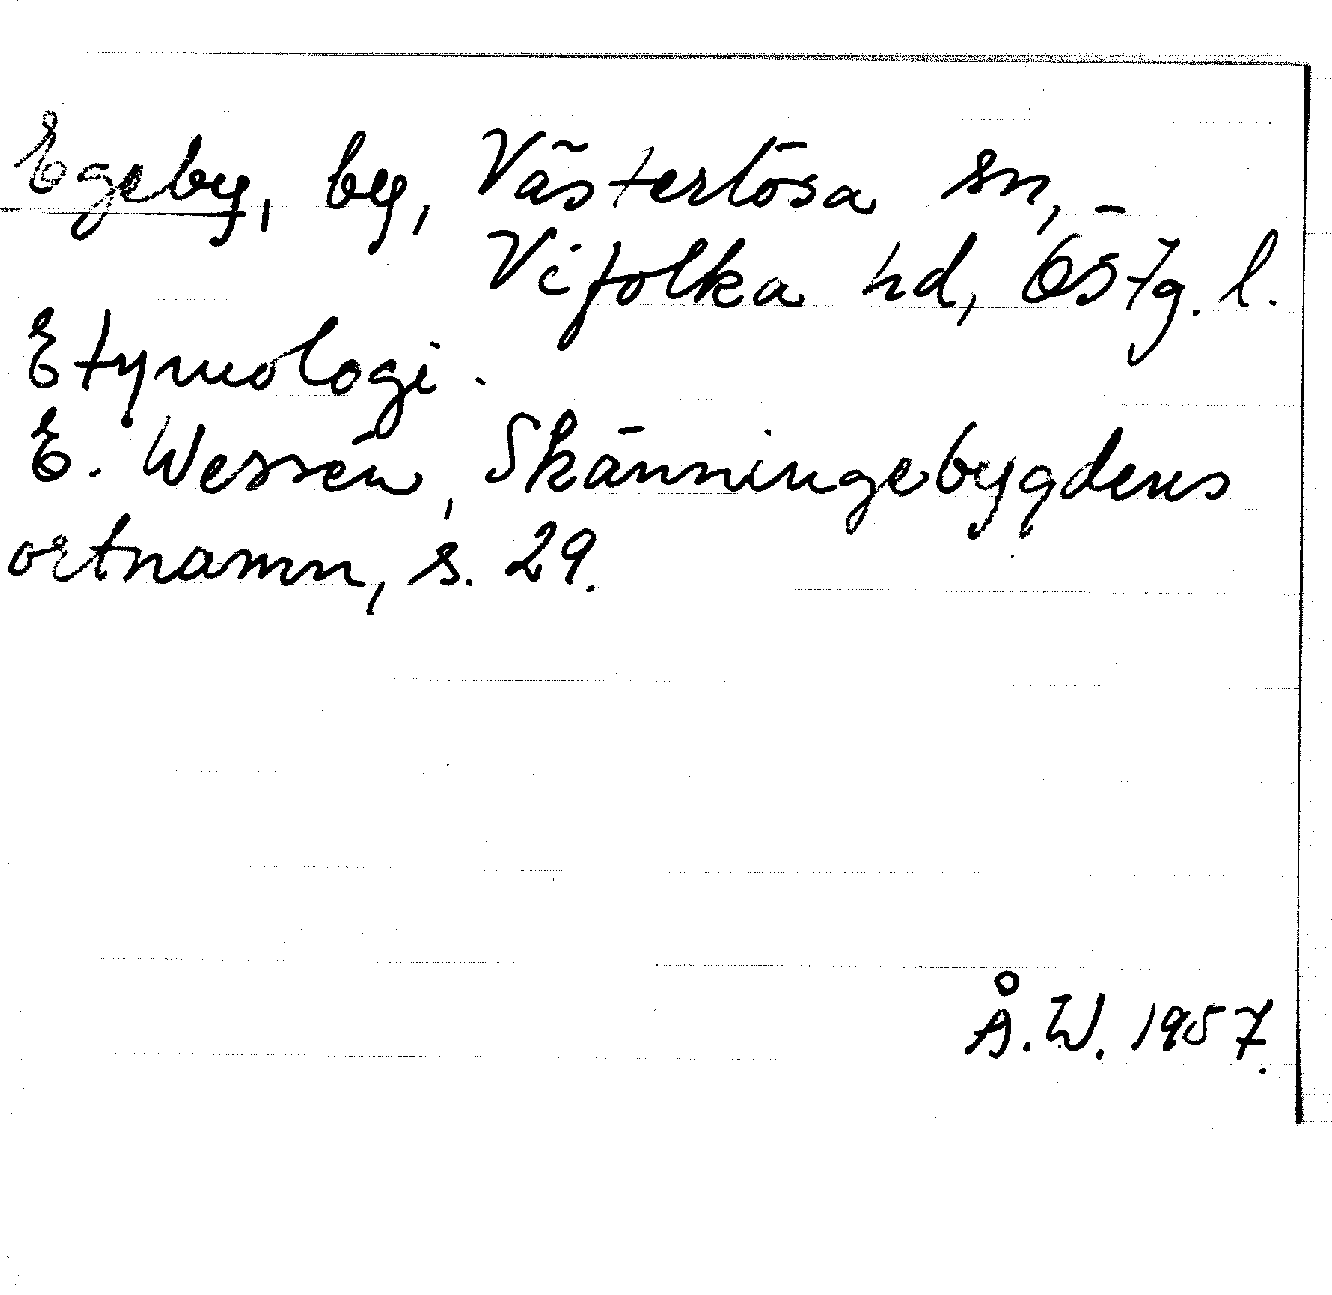 Egeby, by, Västerlösa sn,
Vifolka hd, Östg. l.
Etymologi.
E. Wessén, Skänningebygdens
ortnamn, s. 29.
Å. W. 1957.